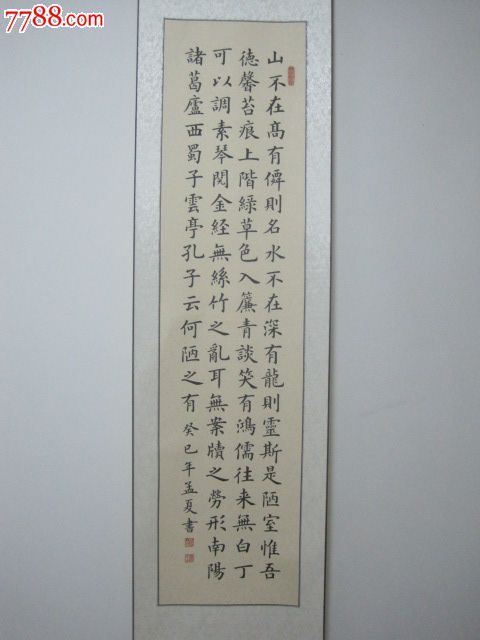 7788.com
中国收藏热线
山不在髙有僊則名水不在深有龍則靈斯是陋室惟吾
徳馨苔痕上階綠草色入簾青談笑有鴻儒往来無白丁
可以調素琴閱金経無絲竹之亂耳無案牘之勞形南陽
諸葛廬西蜀子雲亭孔子云何陋之有癸巳年孟夏書